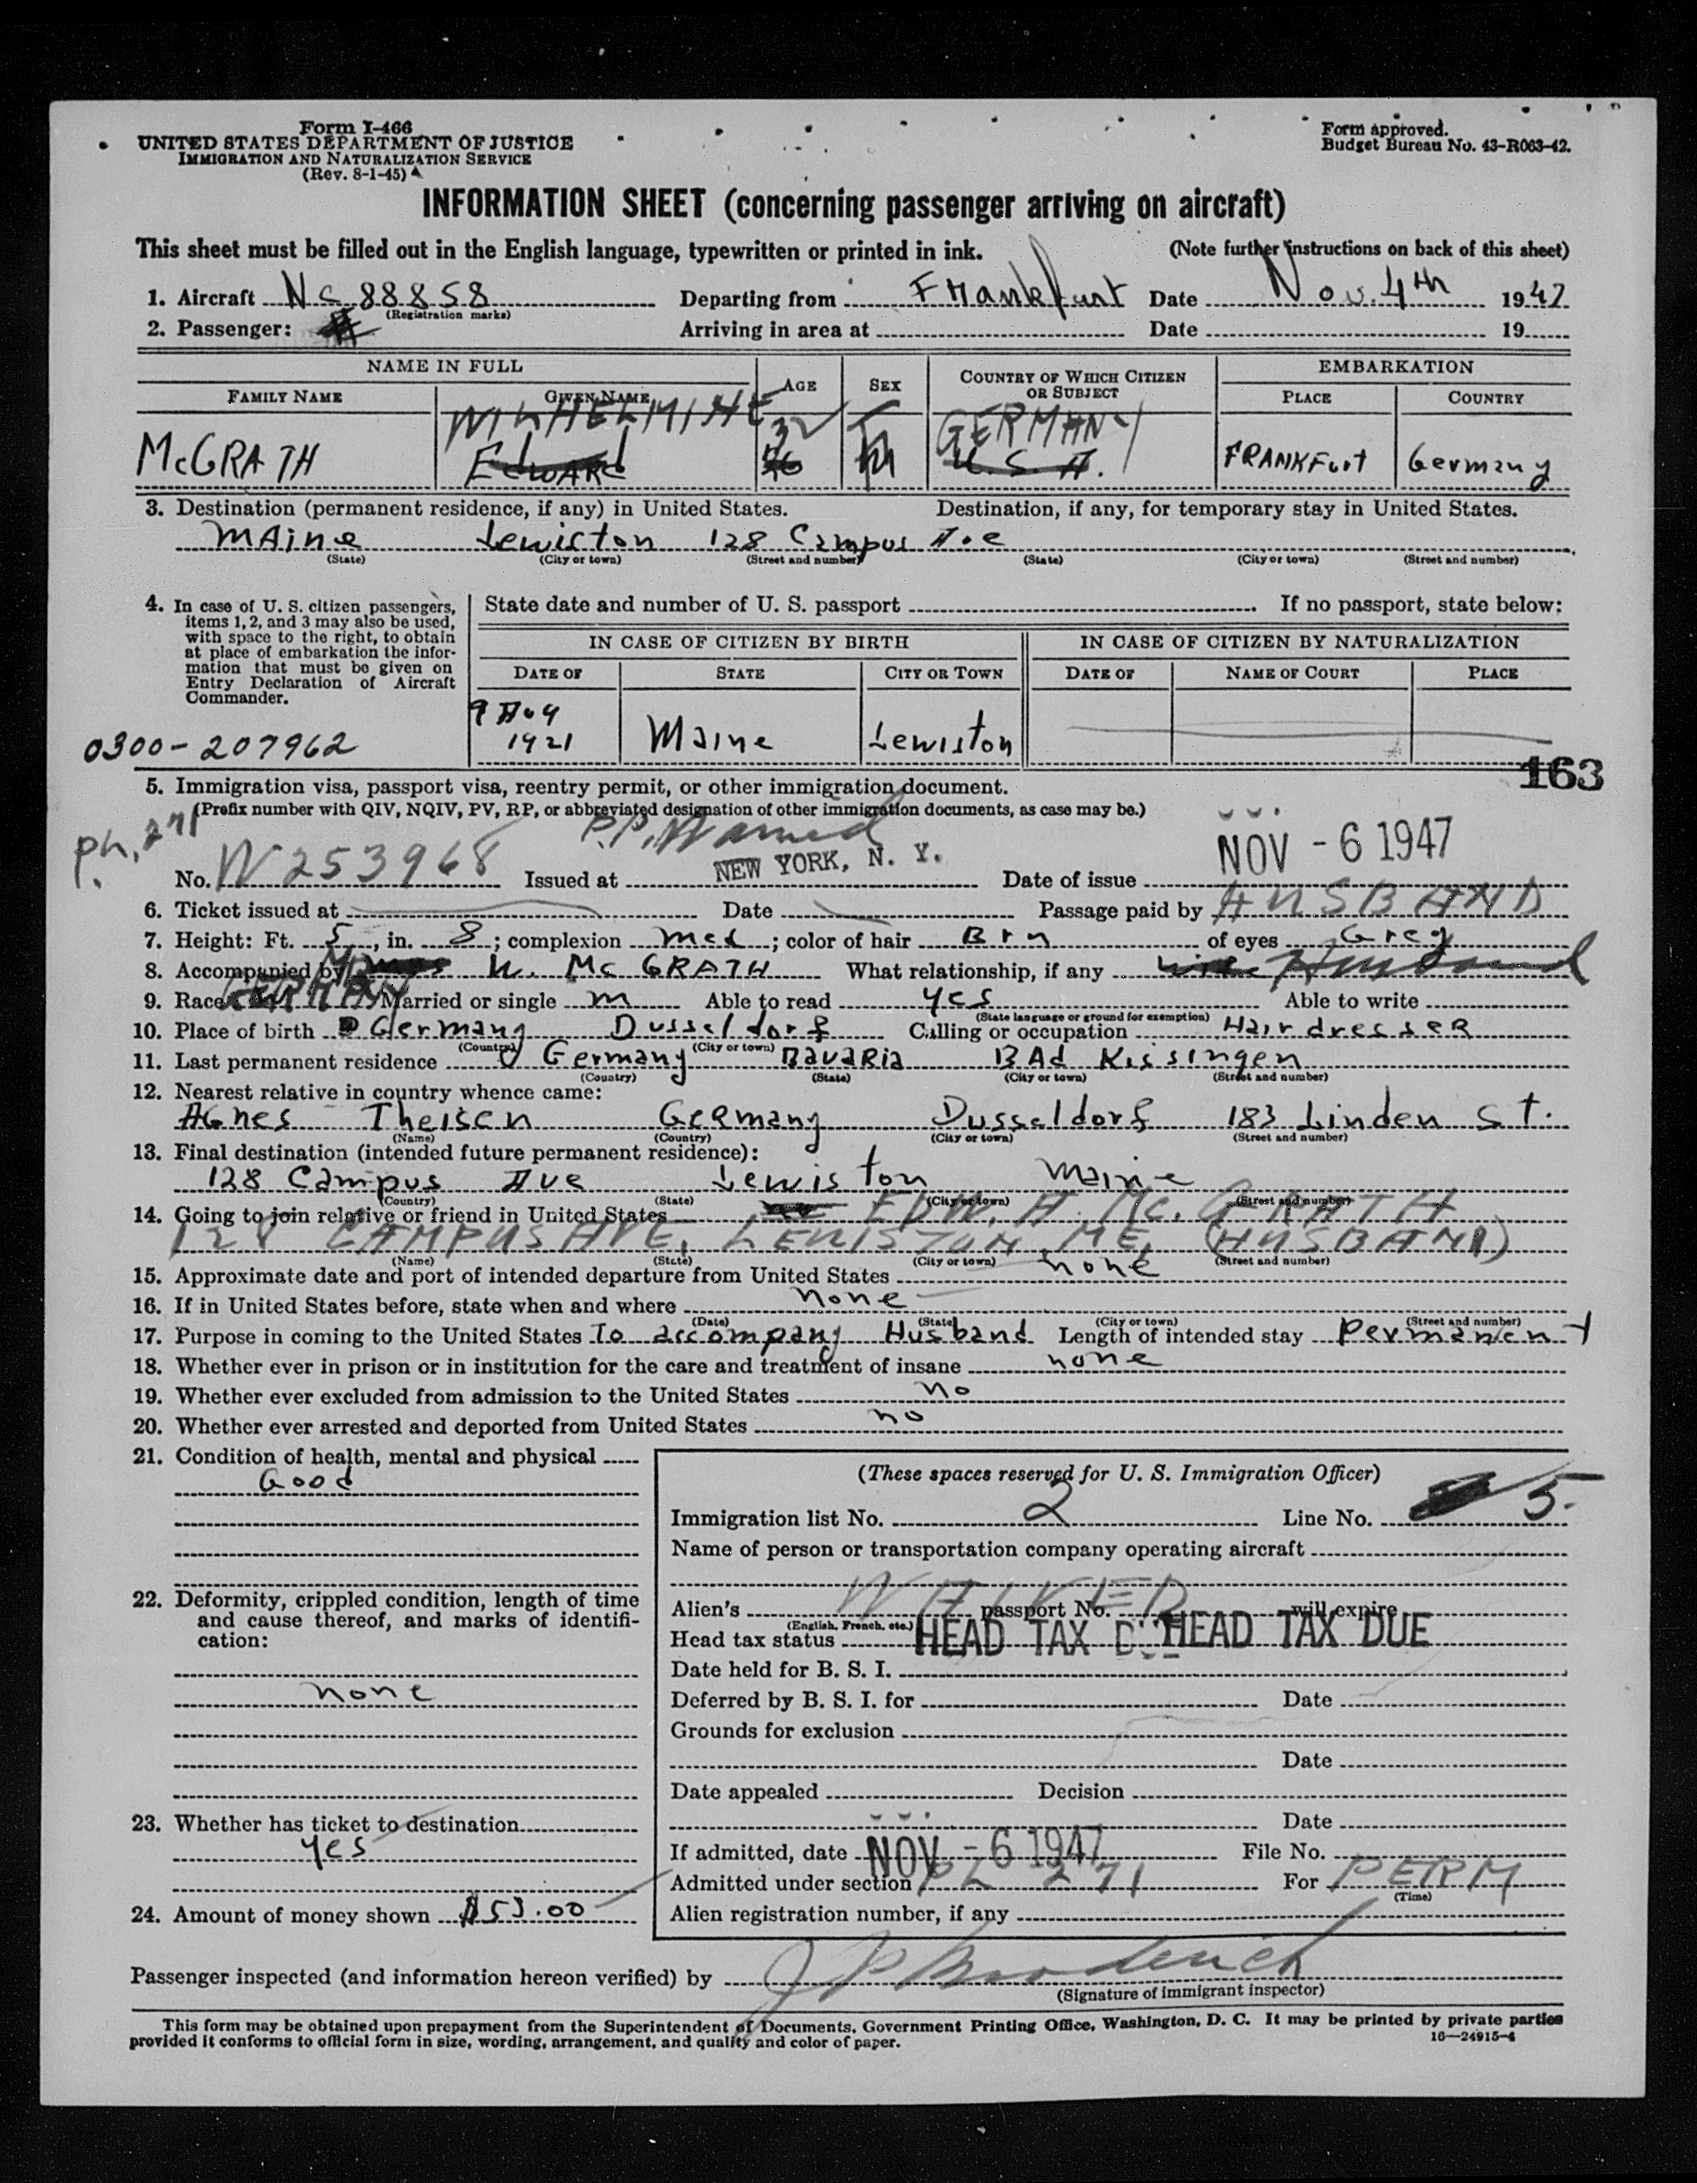 Form I-466
UNITED STATES DEPARTMENT OF JUSTICE
IMMIGRATION AND NATURALIZATION SERVICE
(Rev. 8-1-45)
Form approved.
Budget Bureau No. 43-R063-42.
INFORMATION SHEET (concerning passenger arriving on aircraft)
This sheet must be filled out in the English language, typewritten or printed in ink. (Note further instructions on back of this sheet)
1. Aircraft Nc 88858 Departing from Frankfurt Date Nov. 4th 1947
(Registration marks)
2. Passenger: Arriving in area at Date 19
NAME IN FULL AGE SEX COUNTRY OF WHICH CITIZEN OR SUBJECT EMBARKATION
FAMILY NAME GIVEN NAME PLACE COUNTRY
WILHELMINE 32 F GERMANY
McGRATH Edward M U. S. A. FRANKFurt Germany
3. Destination (permanent residence, if any) in United States. Destination, if any, for temporary stay in United States.
Maine Lewiston 128 Campus Ave
(State) (City or town) (Street and number) (State) (City or town) (Street and number)
4. In case of U. S. citizen passengers, items 1, 2, and 3 may also be used, with space to the right, to obtain at place of embarkation the information that must be given on Entry Declaration of Aircraft Commander.
State date and number of U. S. passport If no passport, state below:
IN CASE OF CITIZEN BY BIRTH IN CASE OF CITIZEN BY NATURALIZATION
DATE OF STATE CITY OR TOWN DATE OF NAME OF COURT PLACE
9 Aug
1921 Maine Lewiston
0300-207962
163
5. Immigration visa, passport visa, reentry permit, or other immigration document.
(Prefix number with QIV, NQIV, PV, RP, or abbreviated designation of other immigration documents, as case may be.)
P.P. Waived
No. W 253968 Issued at NEW YORK, N. Y. Date of issue NOV - 6 1947
6. Ticket issued at Date Passage paid by HUSBAND
7. Height: Ft. 5, in. 8; complexion med; color of hair Brn of eyes Grey
8. Accompanied by MR W. McGRATH What relationship, if any wife Husband
9. Race GERMANY Married or single M Able to read yes Able to write
(State language or ground for exemption)
10. Place of birth Germany Dusseldorf Calling or occupation Hairdresser
(Country) (City or town)
11. Last permanent residence Germany Bavaria Bad Kissingen
(Country) (State) (City or town) (Street and number)
12. Nearest relative in country whence came:
Agnes Theisen Germany Dusseldorf 183 Linden St.
(Name) (Country) (City or town) (Street and number)
13. Final destination (intended future permanent residence):
128 Campus Ave Lewiston Maine
(Country) (State) (City or town) (Street and number)
14. Going to join relative or friend in United States EDW. A. McGRATH
128 CAMPUS AVE, LEWISTON, ME, (HUSBAND)
(Name) (State) (City or town) (Street and number)
15. Approximate date and port of intended departure from United States none
16. If in United States before, state when and where none
(Date) (State) (City or town) (Street and number)
17. Purpose in coming to the United States To accompany Husband Length of intended stay Permanent
18. Whether ever in prison or in institution for the care and treatment of insane none
19. Whether ever excluded from admission to the United States no
20. Whether ever arrested and deported from United States no
21. Condition of health, mental and physical
Good
22. Deformity, crippled condition, length of time and cause thereof, and marks of identification:
none
23. Whether has ticket to destination
yes
24. Amount of money shown $53.00
(These spaces reserved for U. S. Immigration Officer)
Immigration list No. 2 Line No. 5
Name of person or transportation company operating aircraft
WAIVED
Alien's passport No. will expire
(English, French, etc.)
Head tax status HEAD TAX D HEAD TAX DUE
Date held for B. S. I.
Deferred by B. S. I. for Date
Grounds for exclusion
Date
Date appealed Decision
Date
If admitted, date NOV - 6 1947 File No.
Admitted under section PL 271 For PERM
(Time)
Alien registration number, if any
Passenger inspected (and information hereon verified) by J P Broderick
(Signature of immigrant inspector)
This form may be obtained upon prepayment from the Superintendent of Documents, Government Printing Office, Washington, D. C. It may be printed by private parties
provided it conforms to official form in size, wording, arrangement, and quality and color of paper.
16—24915-4